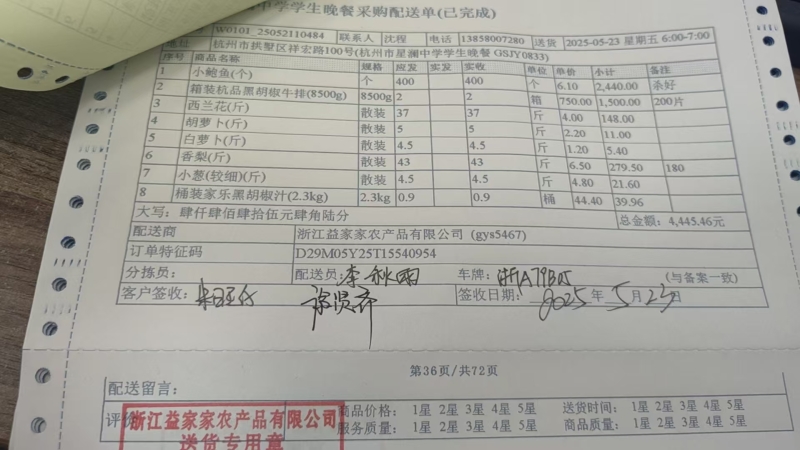 中学学生晚餐采购配送单(已完成)
W0101_25052110484 联系人 沈程 电话 13858007280 送货 2025-05-23 星期五 6:00-7:00
地址 杭州市拱墅区祥宏路100号(杭州市星澜中学学生晚餐 GSJY0833)
序号 商品名称 规格 应发 实发 实收 单位 单价 小计 备注
1 小鲍鱼(个) 个 400 400 个 6.10 2,440.00 杀好
2 箱装杭品黑胡椒牛排(8500g) 8500g 2 2 箱 750.00 1,500.00 200片
3 西兰花(斤) 散装 37 37 斤 4.00 148.00
4 胡萝卜(斤) 散装 5 5 斤 2.20 11.00
5 白萝卜(斤) 散装 4.5 4.5 斤 1.20 5.40
6 香梨(斤) 散装 43 43 斤 6.50 279.50 180
7 小葱(较细)(斤) 散装 4.5 4.5 斤 4.80 21.60
8 桶装家乐黑胡椒汁(2.3kg) 2.3kg 0.9 0.9 桶 44.40 39.96
大写：肆仟肆佰肆拾伍元肆角陆分 总金额：4,445.46元
配送商 浙江益家家农产品有限公司 (gys5467)
订单特征码 D29M05Y25T15540954
分拣员： 配送员：李秋雨 车牌：浙A79B05 (与备案一致)
客户签收： 签收日期：2025年5月23日
第36页/共72页
配送留言：
评价 商品价格： 1星 2星 3星 4星 5星 送货时间： 1星 2星 3星 4星 5星
服务质量： 1星 2星 3星 4星 5星 商品质量： 1星 2星 3星 4星 5星
浙江益家家农产品有限公司
送货专用章